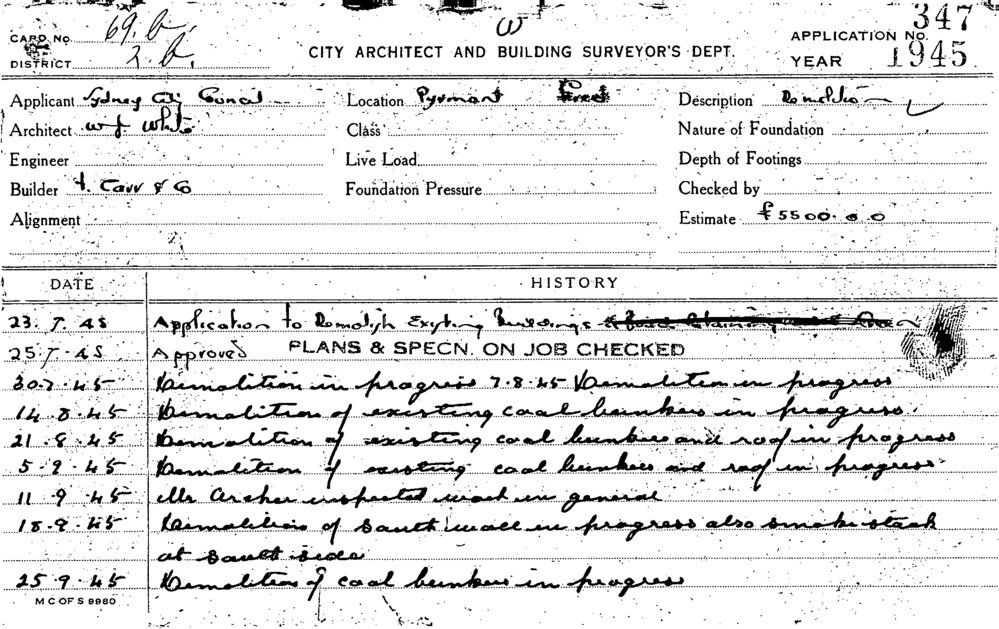 W
347
CARD NO. 69.b.
CITY ARCHITECT AND BUILDING SURVEYOR'S DEPT.
APPLICATION NO.
DISTRICT 2.b.
YEAR 1945
Applicant Sydney City Council Location Pyrmont Street Description Demolition
Architect W J White Class Nature of Foundation
Engineer Live Load Depth of Footings
Builder Carr & Co Foundation Pressure Checked by
Alignment Estimate £5500.0.0
DATE HISTORY
23.7.45 Application to Demolish Existing Buildings
25.7.45 Approved PLANS & SPECN. ON JOB CHECKED
30.7.45 Demolition in progress 7.8.45 Demolition in progress
14.8.45 Demolition of existing coal bunkers in progress.
21.8.45 Demolition of existing coal bunkers and roof in progress
5.9.45 Demolition of existing coal bunkers and roof in progress
11.9.45 Mr Archer inspected work in general
18.9.45 Demolition of South wall in progress also smoke stack
at South side
25.9.45 Demolition of coal bunkers in progress
M C OF S 9980